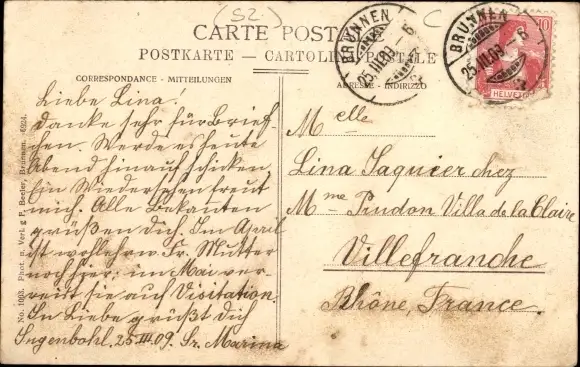 (SZ)
CARTE POSTALE
POSTKARTE — CARTOLINA POSTALE
CORRESPONDANCE - MITTEILUNGEN
Liebe Lina!
Danke sehr für Brief-
chen. Werde es heute
Abend hinauf schicken.
Ein Wiedersehen freut
mich. Alle Bekannten
grüßen dich. Im April
ist wohlehrw. Fr. Mutter
noch hier; im Mai ver-
reist sie auf Visitation.
In Liebe grüßt dich
Ingenbohl. 25.III.09. Sr. Marina
No. 1093. Phot. u. Verl. g F. Beeler, Brunnen. 6924.
BRUNNEN
25.III.09 - 6
BRUNNEN
25.III.09 - 6
10
HELVETIA
ADRESSE - INDIRIZZO
Melle
Lina Jaquier chez
Mme Prudon Villa de la Claire
Villefranche
Rhône, France.